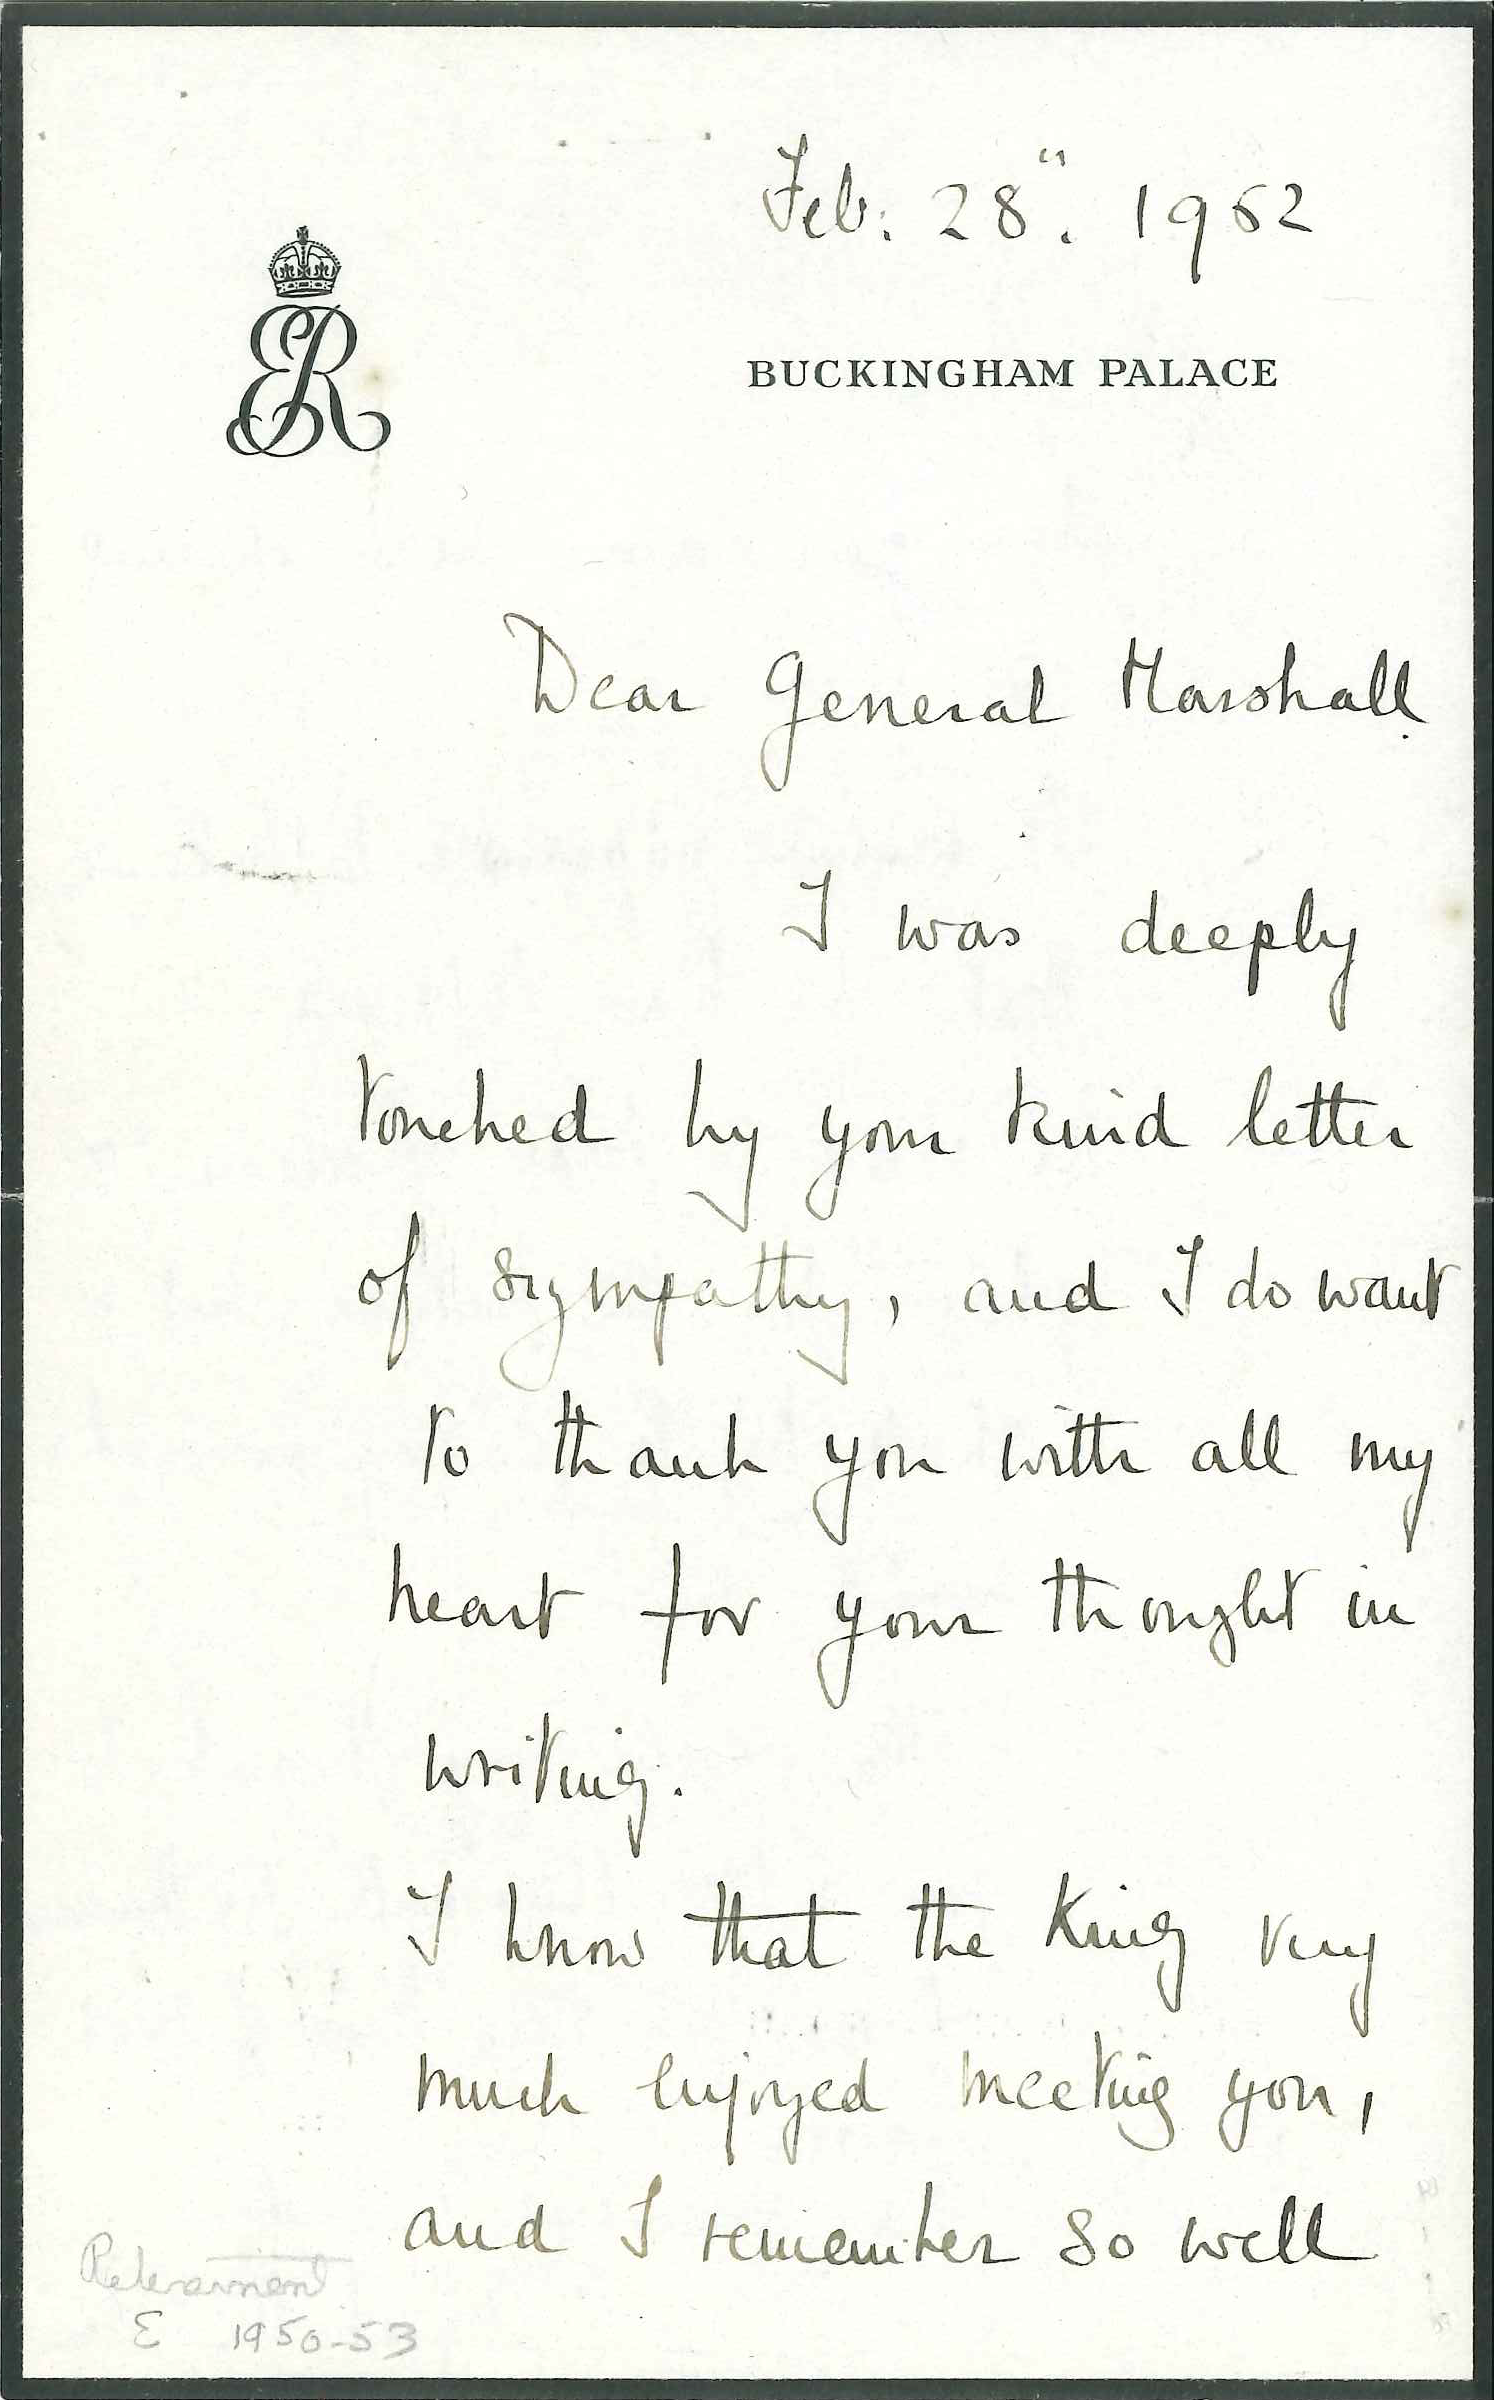 Feb: 28". 1952
ER
BUCKINGHAM PALACE
Dear General Marshall.
I was deeply
touched by your kind letter
of sympathy, and I do want
to thank you with all my
heart for your thought in
writing.
I know that the King very
much enjoyed meeting you,
and I remember so well
Retirement
E 1950-53